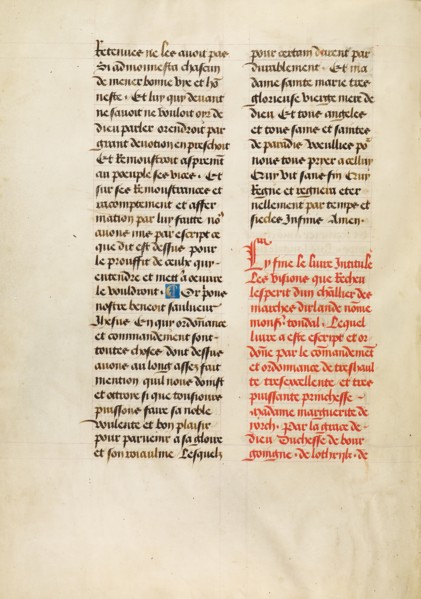 Retenues ne les auoit pas
Si admonnesta chascun
de mener bonne vye et hō
neste · Et luy quy deuant
ne sauoit ne vouloit ors de
dieu parler orendroit par
grant deuotion en preschoit
Et Remoustroit asprement
au poeuple ses vices · Et
sur ses Remoustrances et
racomptement et affer
mation par luy faitte no9
auons mis par escript ce
que dit est dessus pour
le prouffit de ceulx quy ·
entendre et mettre a oeuure
le vouldront · Or prions
nostre benoit sauueur
Jhesus En quy ordōnance
et commandement sont ·
toutes choses dont dessus
auons au long assez fait
mention quil nous doinst
et ottroie si que tousiours
puissons faire sa noble
voulente et bon plaisir
pour paruenir a sa gloire
et son roiaulme Lesquelz
pour certain durent par
durablement · Et ma
dame sainte marie tres
glorieuse vierge mere de
dieu Et tous angeles
et tous sains et saintes
de paradis voeullies po9
nous tous pryer a celluy
Quy vit sans fin Quy
Regne et regnera eter
nellement par temps et
siecles Infinis Amen ·
Cy fine le liure Intitule
Les visions que Recheu
lesperit dun cheuallier des
marches dirlande nōme
monsr tondal · Lequel
liure a este escript et or
dōne par le comandemēt
et ordonnance de treshaul
te tresexellente et tres
puissante princhesse ·
Madame marguerite de
yorch · Par la grace de ·
dieu Duchesse de bour
goingne · de lothryk · de